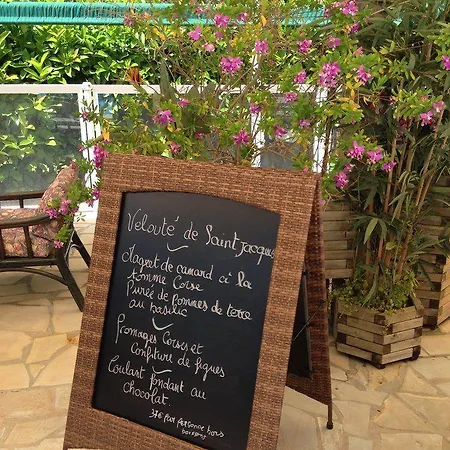 Velouté de Saint Jacques
Magret de canard à la
tomme Corse
Purée de Pommes de terre
au basilic
Fromages Corses et
Confiture de figues
Coulant fondant au
chocolat.
37€ par personne hors
boissons